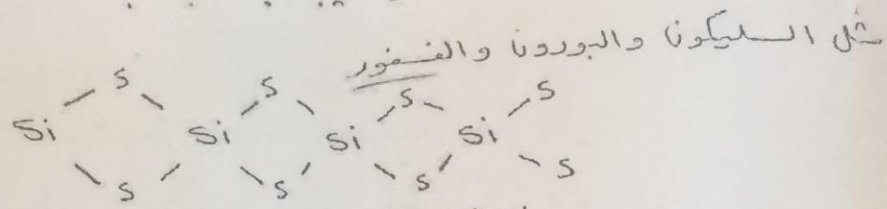 مثل السليكون والبورون والفسفور
S S S S
Si Si Si Si
S S S S